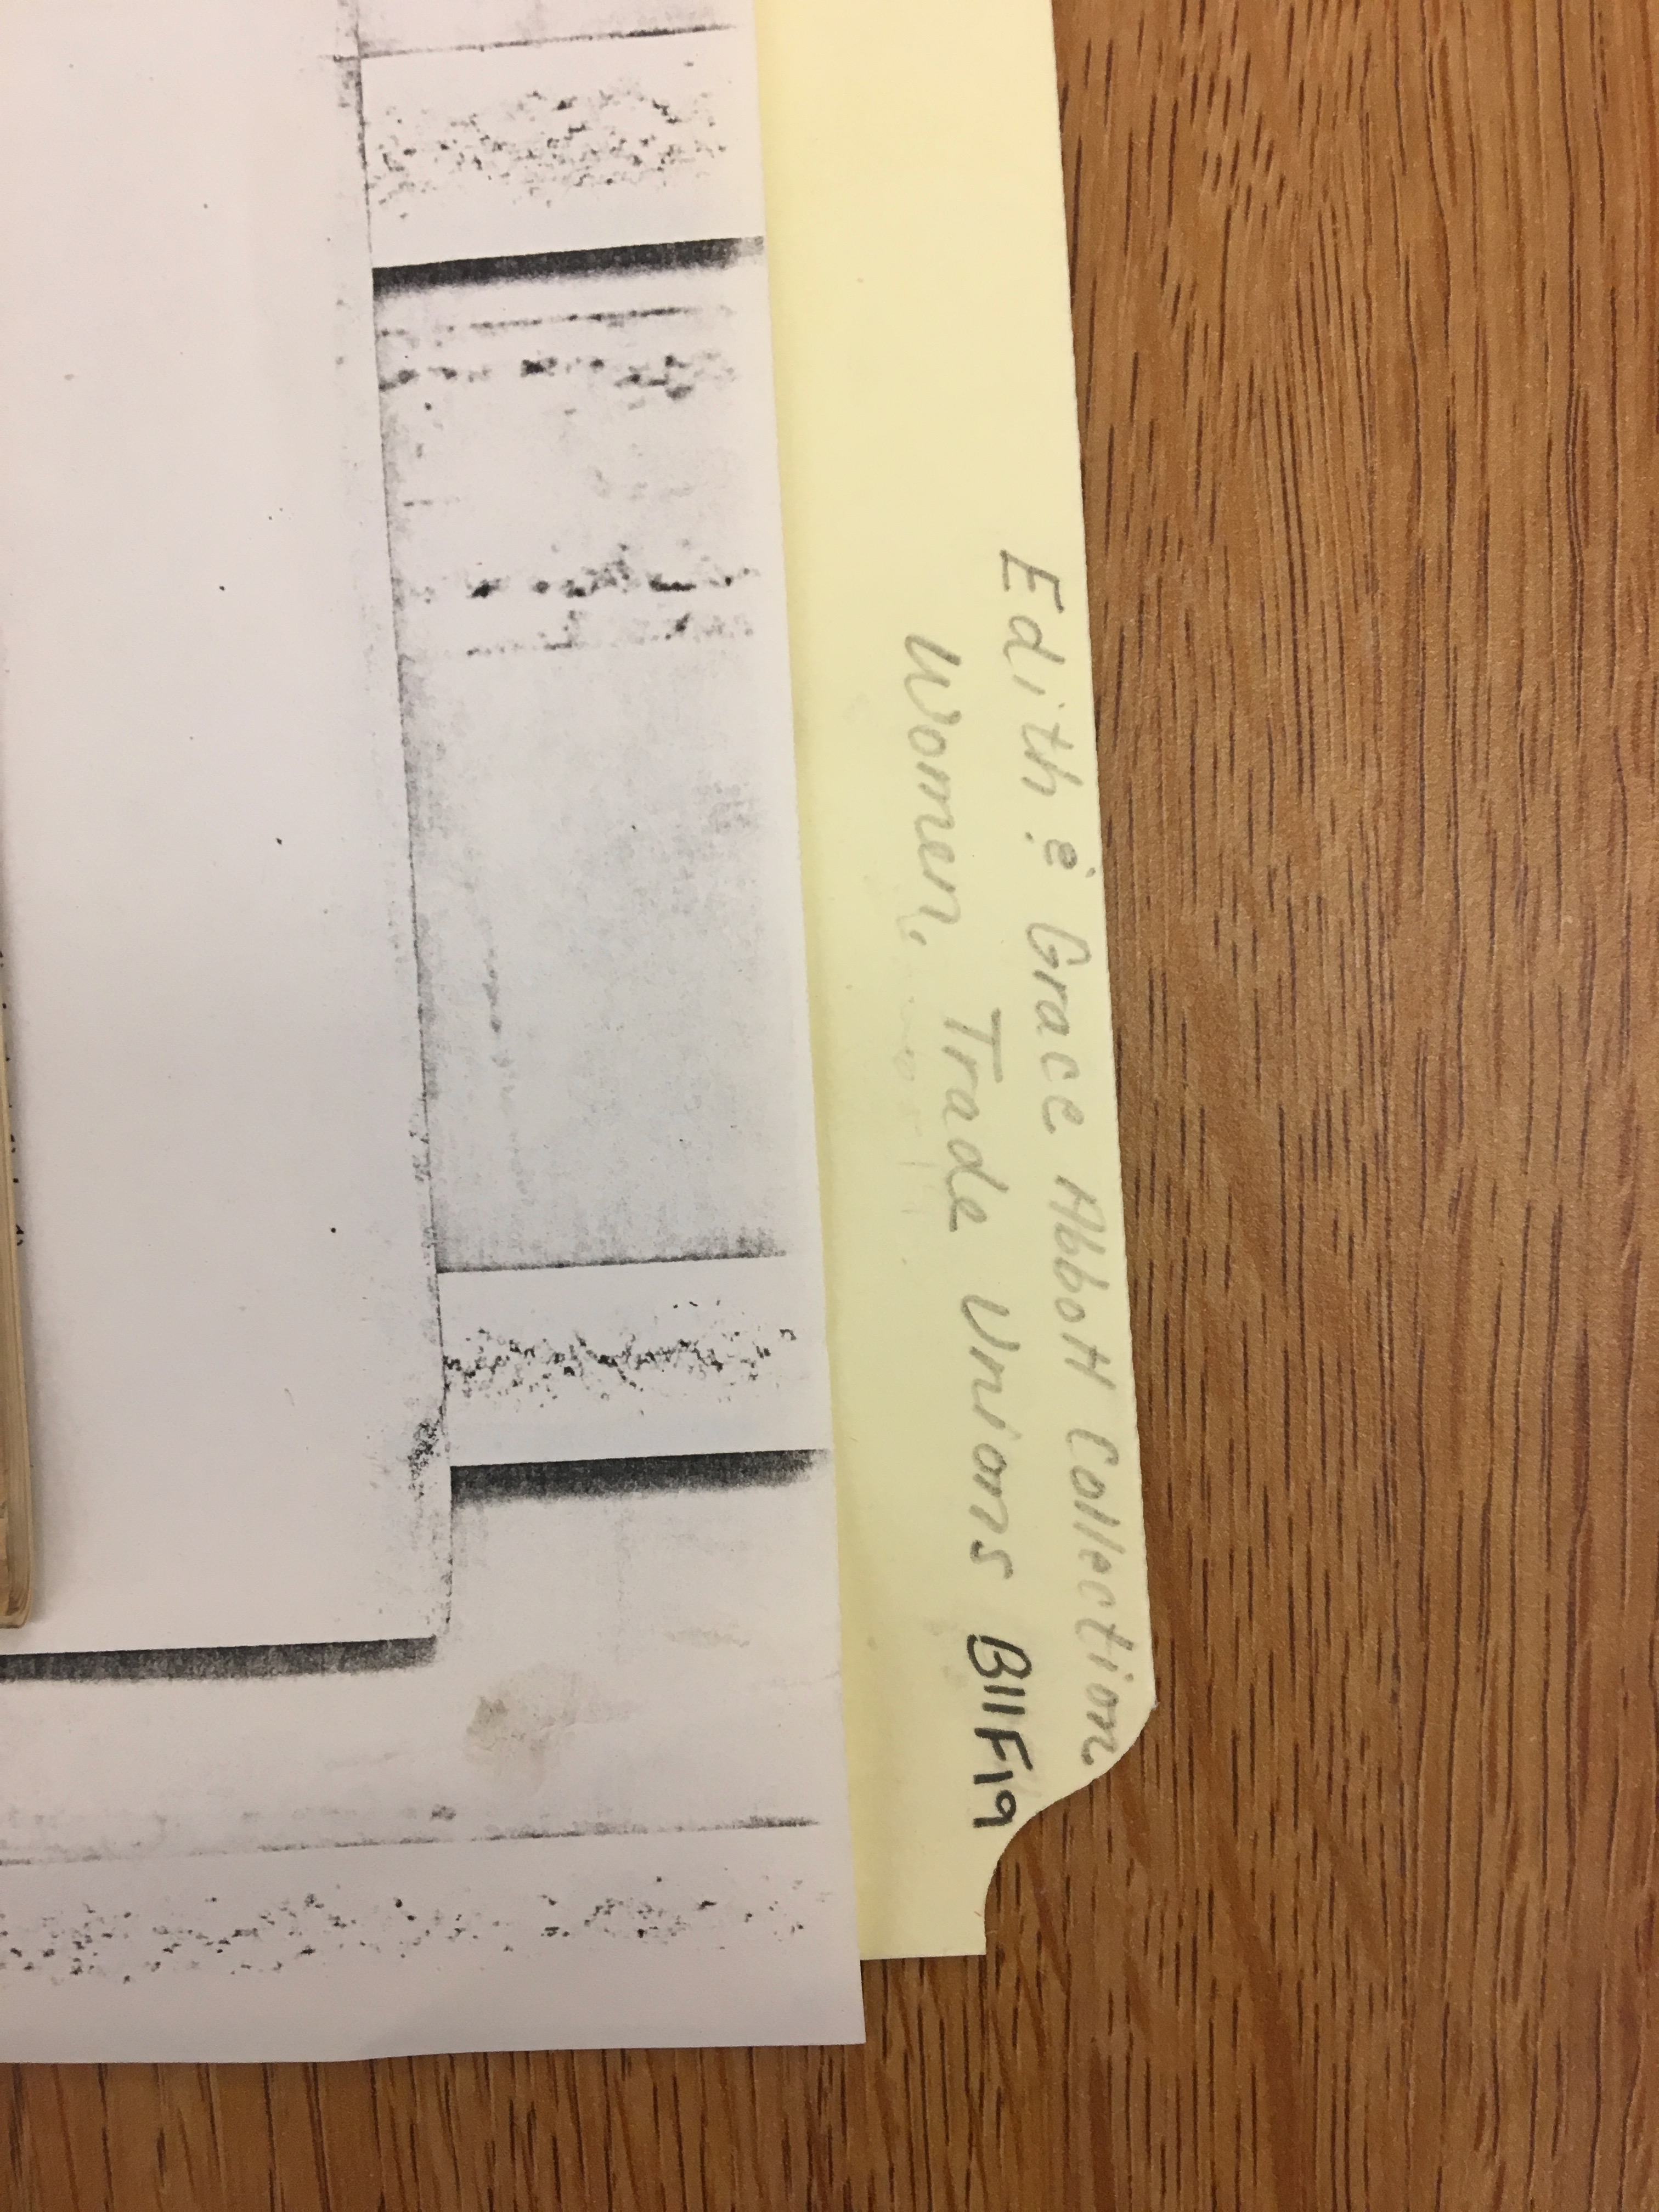 Edith & Grace Abbott Collection
Women, Trade Unions B11F19